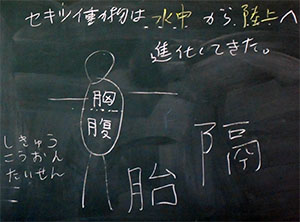 セキツイ動物は水中から陸上へ
進化してきた。
胸
腹
しきゅう
こうおん
たいせん
胎
隔